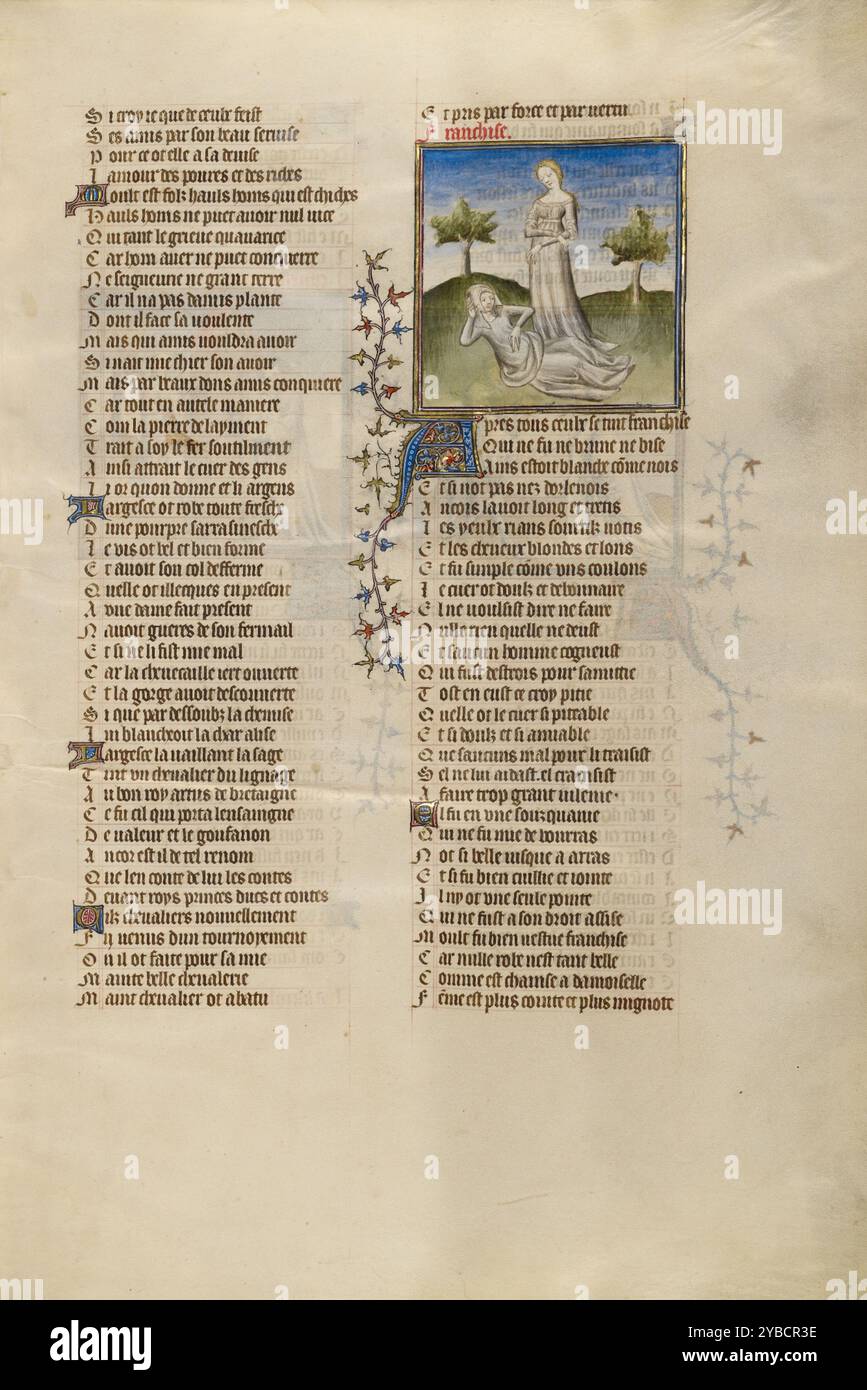 Si croy ie que de ceulx feist
Ses amis par son beau seruise
Pour ce ot elle a sa deuise
Lamour des poures et des riches
Moult est folz hauls homs qui est chiches
Hauls homs ne puet auoir nul uice
Qui tant le grieue quauarice
Car hom auer ne puet conquerre
Ne seigneurie ne grant terre
Car il na pas damis plante
Dont il face sa uoulente
Mais qui amis vouldra auoir
Si nait mie chier son auoir
Mais par beaux dons amis conquiere
Car tout en autele maniere
Com la pierre de layment
Trait a soy le fer soutilment
Ainsi attrait le cuer des gens
Li or quon donne et li argens
Largesce ot robe toute fresche
Dune pourpre sarrasinesche
Le vis ot bel et bien forme
Et auoit son col defferme
Quelle ot illecques en present
A vne dame fait present
Nauoit gueres de son fermail
Et si ne li fist mie mal
Car la cheuecaille iert ouuerte
Et la gorge auoit descouuerte
Si que par dessoubz la chemise
Lui blancheoit la char alise
Largesce la uaillant la sage
Tint vn cheualier du lignage
Au bon roy artus de bretaigne
Ce fu cil qui porta lensaingne
De ualeur et le gonfanon
Ancor est il de tel renom
Que len conte de lui les contes
Deuant roys princes ducs et contes
Cilz cheualiers nouuellement
Fu uenus dun tournoyement
Ou il ot faite pour sa mie
Mainte belle cheualerie
Maint cheualier ot abatu
Et pris par force et par uertu
Franchise.
Apres tous ceulx se tint franchise
Qui ne fu ne brune ne bise
Ains estoit blanche cõme nois
Et si not pas nez dorlenois
Ancois lauoit long et tretis
Les yeulx rians sourcilz uotis
Et les cheueux blondes et lons
Et fu simple cõme vns coulons
Le cuer ot doulz et debonnaire
El ne uoulsist dire ne faire
Nulle rien quelle ne deust
Et saucun homme cogneust
Qui fust destrois pour samitie
Tost en eust ce croy pitie
Quelle ot le cuer si piteable
Et si doulz et si amiable
Que saucuns mal pour li traisist
Sel ne lui aidast. el crainsist
A faire trop grant uilenie.
El fu en vne sourquanie
Qui ne fu mie de bourras
Not si belle iusque a arras
Et si fu bien cuillie et iointe
Il ny ot vne seule pointe
Qui ne fust a son droit assise
Moult fu bien uestue franchise
Car nulle robe nest tant belle
Comme est chainse a damoiselle
Fẽme est plus cointe et plus mignote
alamy
Image ID: 2YBCR3E
www.alamy.com